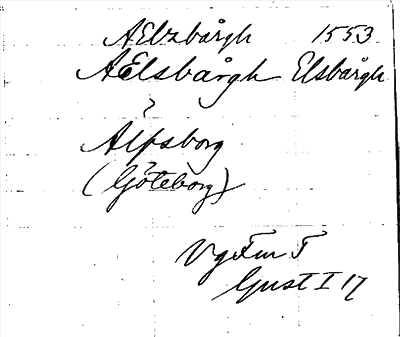 AElzbårgh 1553
AElsbårgh Elsbårgh
?
Älfsborg
(Göteborg)
Gust I 17